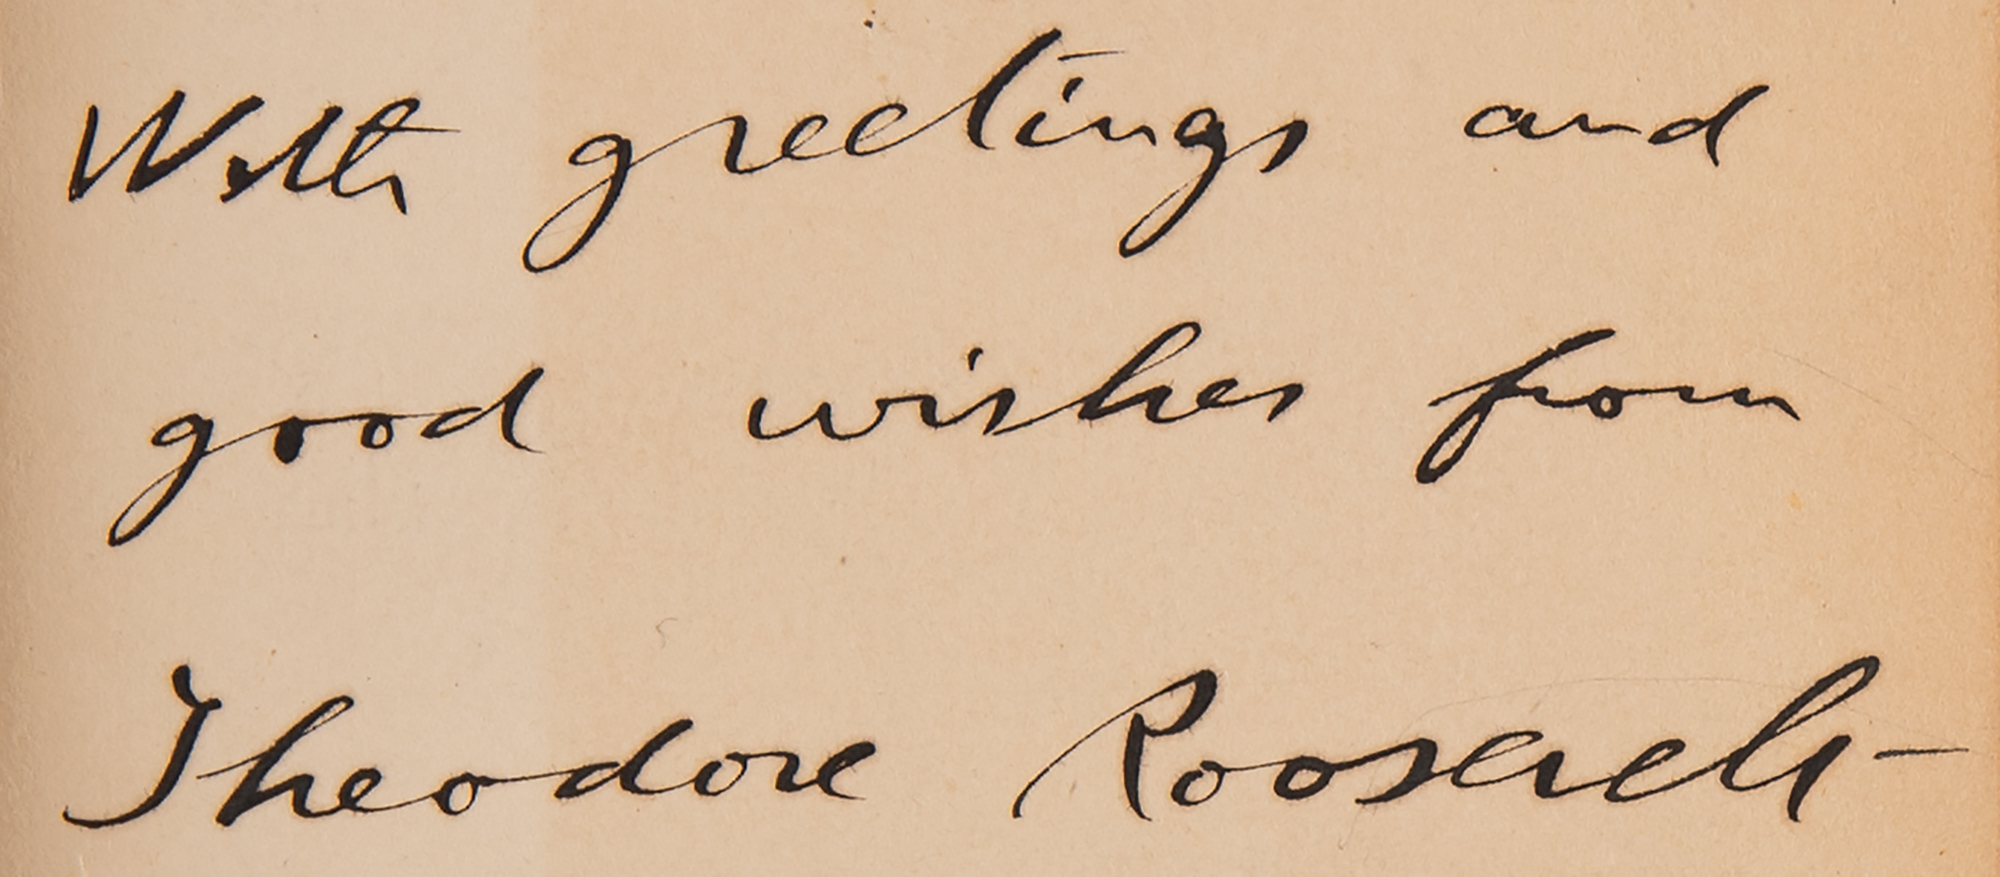 With greetings and
good wishes from
Theodore Roosevelt